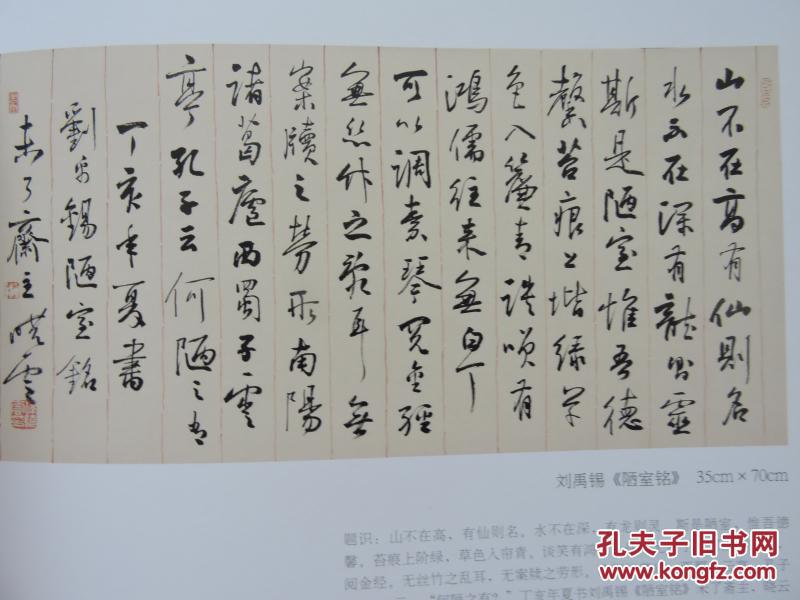 山不在高有仙則名
水不在深有龍則靈
斯是陋室惟吾德
馨苔痕上堦綠草
色入簾青談咲有
鴻儒往来無白丁
可以調素琴閱金經
無丝竹之亂耳無
案牘之勞形南陽
諸葛廬西蜀子雲
亭孔子云何陋之有
丁亥年夏書
劉禹錫陋室銘
未了齋主曉雲
刘禹锡《陋室铭》 35cm×70cm
题识：山不在高，有仙则名。水不在深，有龙则灵。斯是陋室，惟吾德
馨。苔痕上阶绿，草色入帘青。谈笑有鸿
阅金经。无丝竹之乱耳，无案牍之劳形。 子
“何陋之有？”丁亥年夏书刘禹锡《陋室铭》未了斋主，晓云
孔夫子旧书网
www.kongfz.com